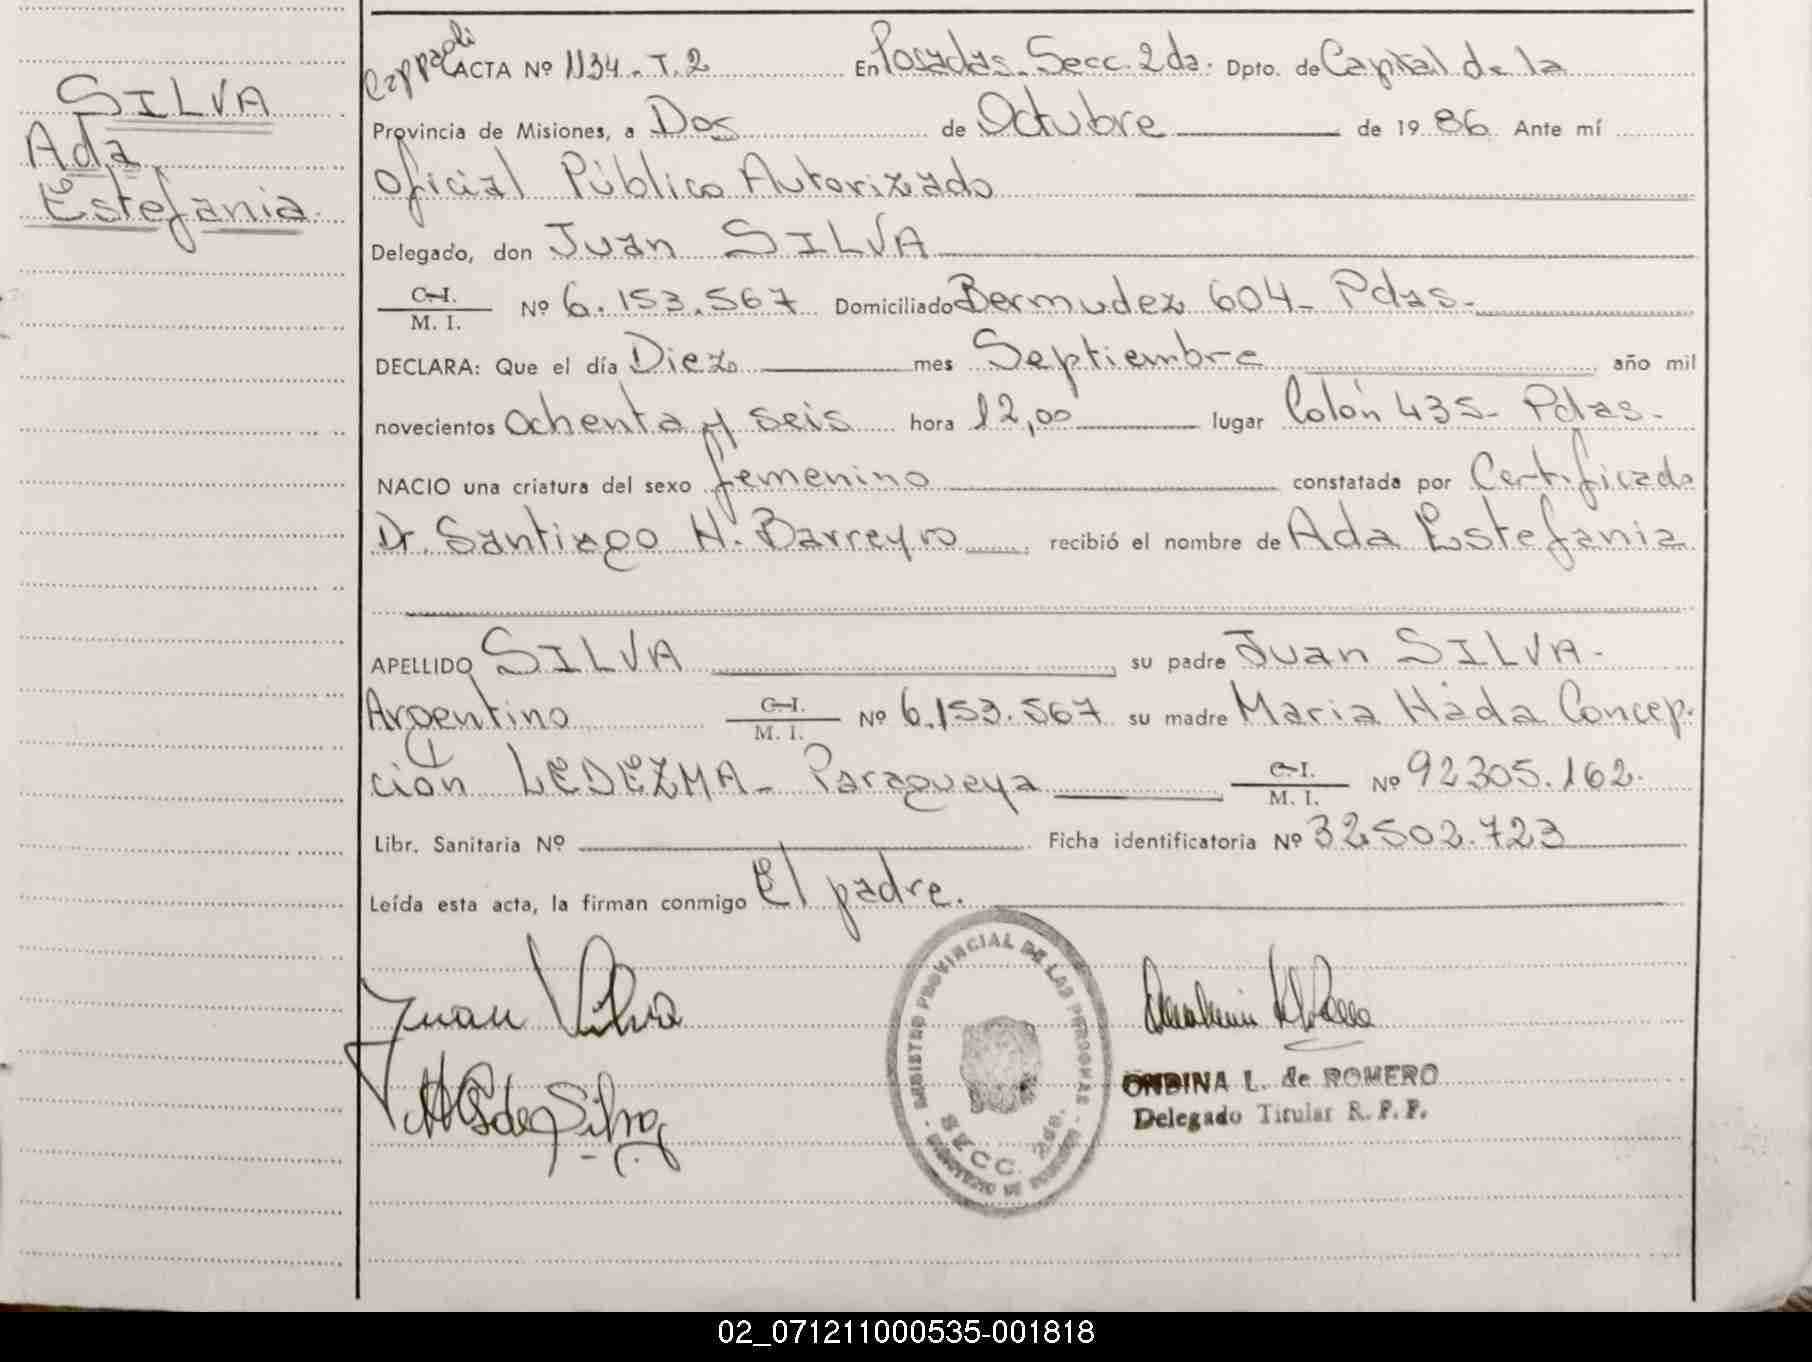 SILVA
Ada
Estefania
Cappaoli
ACTA Nº 1134 - T. 2 En Posadas - Secc. 2da. Dpto. de Capital de la
Provincia de Misiones, a Dos de Octubre de 1986 Ante mí
Oficial Público Autorizado
Delegado, don Juan SILVA
C-I.
M. I. Nº 6.153.567 Domiciliado Bermudez 604 - Pdas.
DECLARA: Que el día Diez mes Septiembre año mil
novecientos ochenta y seis hora 12,00 lugar Colón 435 - Pdas.
NACIO una criatura del sexo femenino constatada por Certificado
Dr. Santiago H. Barreyro recibió el nombre de Ada Estefania
APELLIDO SILVA su padre Juan SILVA -
Argentino C-I. M. I. Nº 6.153.567 su madre Maria Háda Concep-
ción LEDEZMA - Paragueya C-I. M. I. Nº 92305.162.
Libr. Sanitaria Nº Ficha identificatoria Nº 32502.723
Leída esta acta, la firman conmigo El padre.
Juan Silva
de Silva
REGISTRO PROVINCIAL DE LAS PERSONAS
SECC. 2da.
ONDINA L. de ROMERO
Delegado Titular R. P. P.
02_071211000535-001818